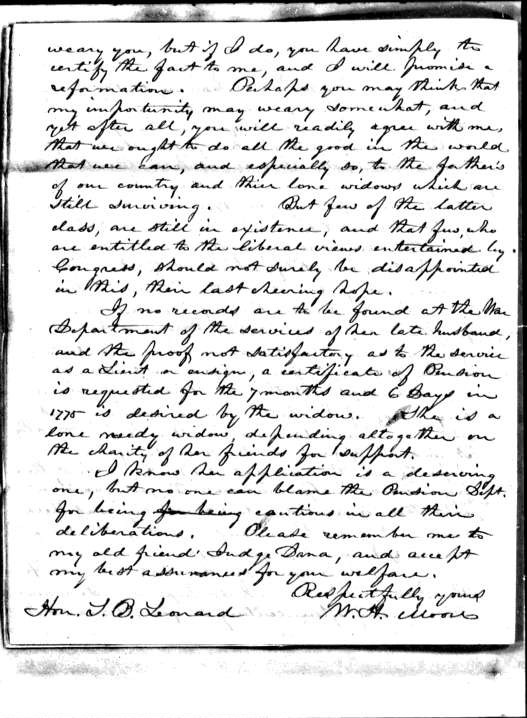 weary you, but if I do, you have simply to
certify the fact to me, and I will promise a
reformation. Perhaps you may think that
my importunity may weary somewhat, and
yet after all, you will readily agree with me,
that we ought to do all the good in the world
that we can, and especially so, to the father's
of our country and thier lone widows which are
still surviving. But few of the latter
class, are still in existence, and that few, who
are entitled to the liberal views entertained by
Congress, should not surely be disappointed
in this, their last cheering hope.
If no records are to be found at the War
Department of the services of her late husband,
and the proof not satisfactory as to the service
as a Lieut or ensign, a certificate of Pension
is requested for the 7 months and 6 Days in
1775 is desired by the widow. She is a
lone needy widow, depending altogether on
the charity of her friends for support.
I know her application is a deserving
one, but no one can blame the Pension Dept.
for being for being cautious in all their
deliberations. Please remember me to
my old friend Judge Dana, and accept
my best assurances for your welfare.
Respectfully yours
Hon. L. B. Leonard W. H. Moore